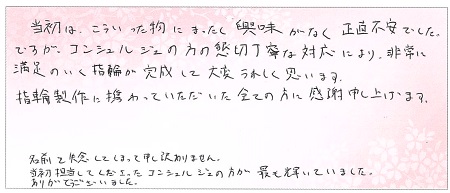 当初は、こういった物にまったく興味がなく正直不安でした。
ですが、コンシェルジュの方の懇切丁寧な対応により、非常に
満足のいく指輪が完成して大変うれしく思います。
指輪製作に携わっていただいた全ての方に感謝申し上げます。
名前を失念してしまって申し訳ありません。
当初担当してくださったコンシェルジュの方が最も輝いていました。
ありがとうございました。